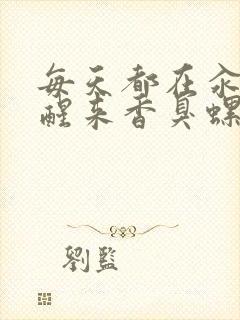 每天都在汆
醒来香臭螺
劉監